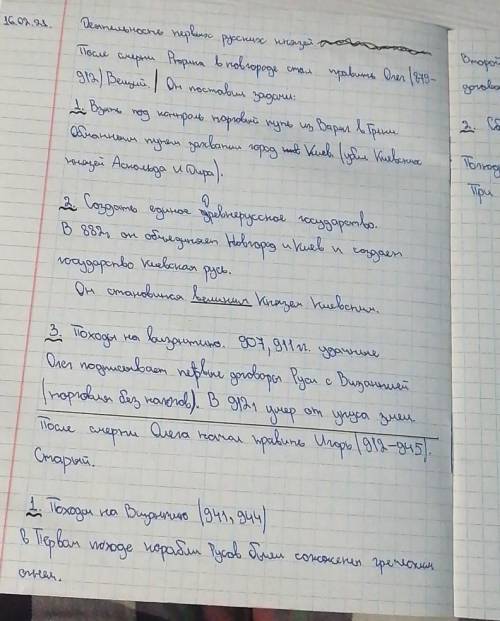 16.02.21. Деятельность первых русских князей
После смерти Рюрика в новгороде стал править Олег (879-
912) Вещий. | Он поставил задачи:
1. Взять под контроль торговый путь из Варяг в Греки
Обманным путем захватил город Киев (убил Киевских
князей Аскольда и Дира).
2. Создать единое Древнерусское государство.
В 882г он объединяет Новгород и Киев и создает
государство Киевская русь.
Он становится великим Князем Киевским.
3. Походы на византию. 907, 911 гг. удачные
Олег подписывает первые договоры Руси с Византией
(торговля без налогов). В 912г умер от укуса змеи.
После смерти Олега начал править Игорь (912-945).
Старый.
1. Походы на Византию (941, 944)
в Первом походе корабли Русов были сожжены греческим
огнем.
Второй
догова
2. Сб
Полюд
При